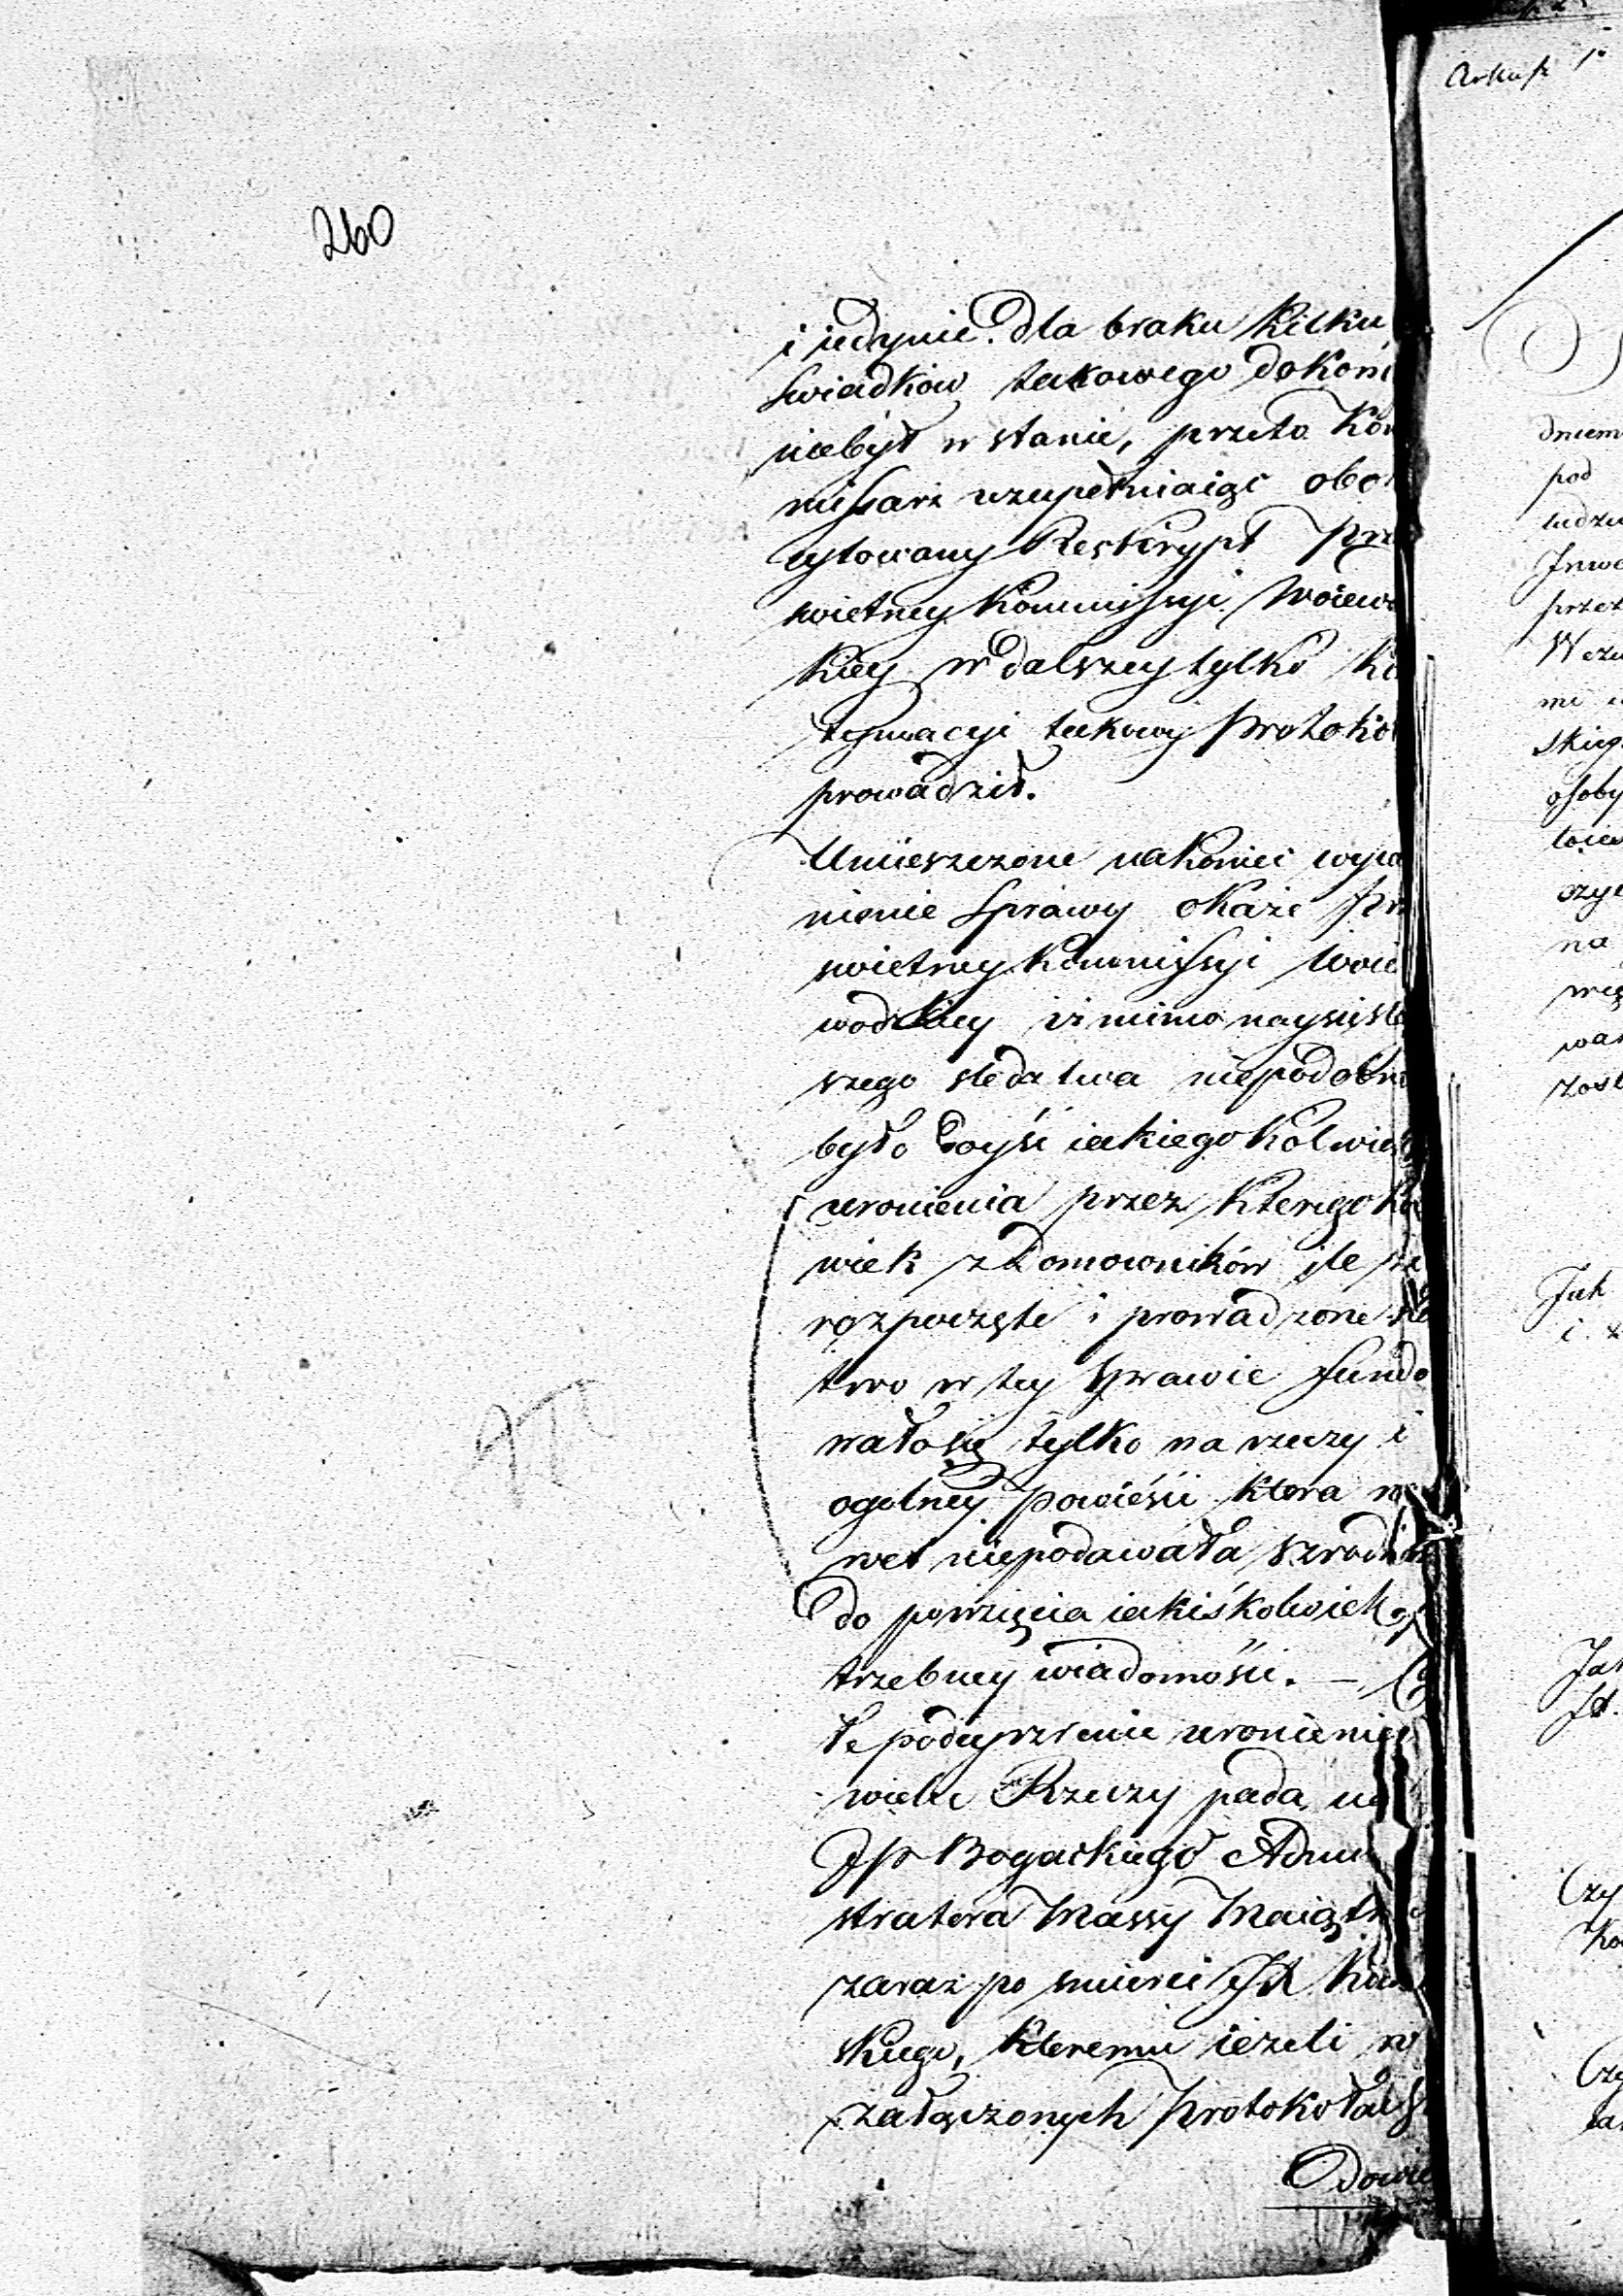 260
i iedynie dla braku kilku
swiadków takowego dokoń
niebył w stanie, przeto Kom
missarz uzupełniaiąc obo
cytowany Reskrypt Prze
swietney Kommissyi Woiewo
kiey w dalszey tylko
takowy Protokoł
prowadził.
Umieszczone nakoniec wyia
nienie sprawy okaże Prz
swietney Kommissyi Woie
wodzkiey iż mimo nayściśle
szego sledztwa niepodobne
było doyść iakiegokolwiek
uronienia przez któregokol
wiek z Domowników ile że
rozpoczęte i prowadzone sle
two w tey sprawie fundo
wało się tylko na rzeczy i
ogolney powieści która na
wet niepodawała szrodk
do powzięcia iakiśkolwiek
trzebney wiadomości. —
łe podeyrzenie uronienia
wielu Rzeczy pada na
JP Bogackiego Admi
stratora Massy Maiątk
zaraz po smierci JX
skiego, któremu ieżeli w
załączonych Protokołach
Odowie
Arkusz 1
dniem
pod
ludzi
Inwe
przez
W cza
mi
skieg
osoby
toies
czyl
na
wię
war
zost
Jak
i
Jak
JX.
Czy
ko
Czy